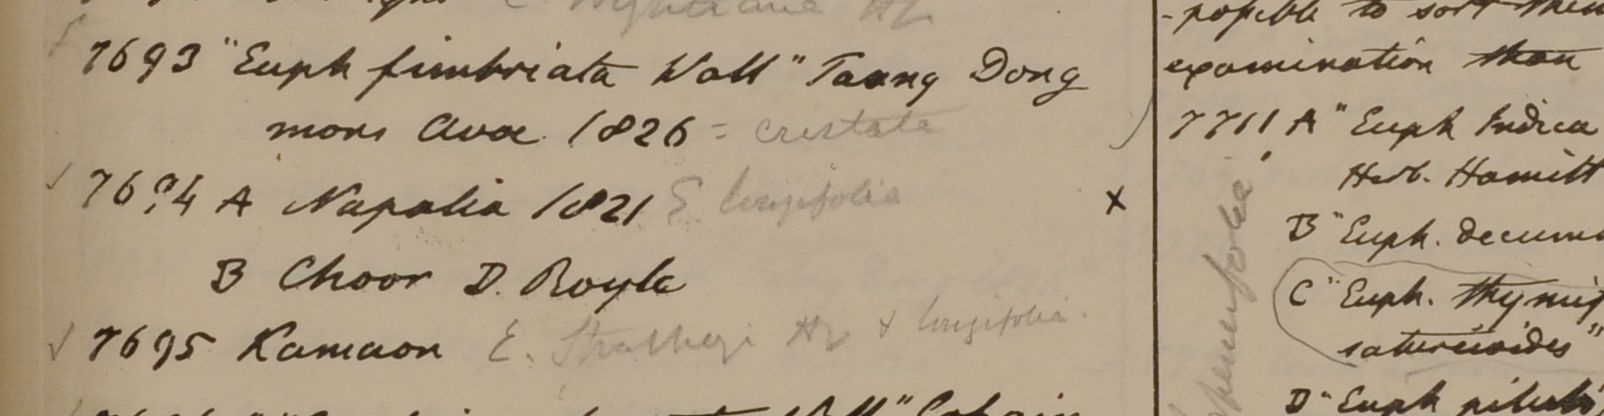 7693 "Euph fimbriata Wall" Taong Dong
mons Avae 1826 = cristata
7694 A Napalia 1821 E longifolia
B Choor D. Royle
7695 Kamaon E. Stracheyi Hf & longifolia.
-possible to sort them
examination than
7711 A "Euph Indica
Herb. Hamilt
B "Euph. decum
C "Euph. thymif
satureioides"
D "Euph pilul